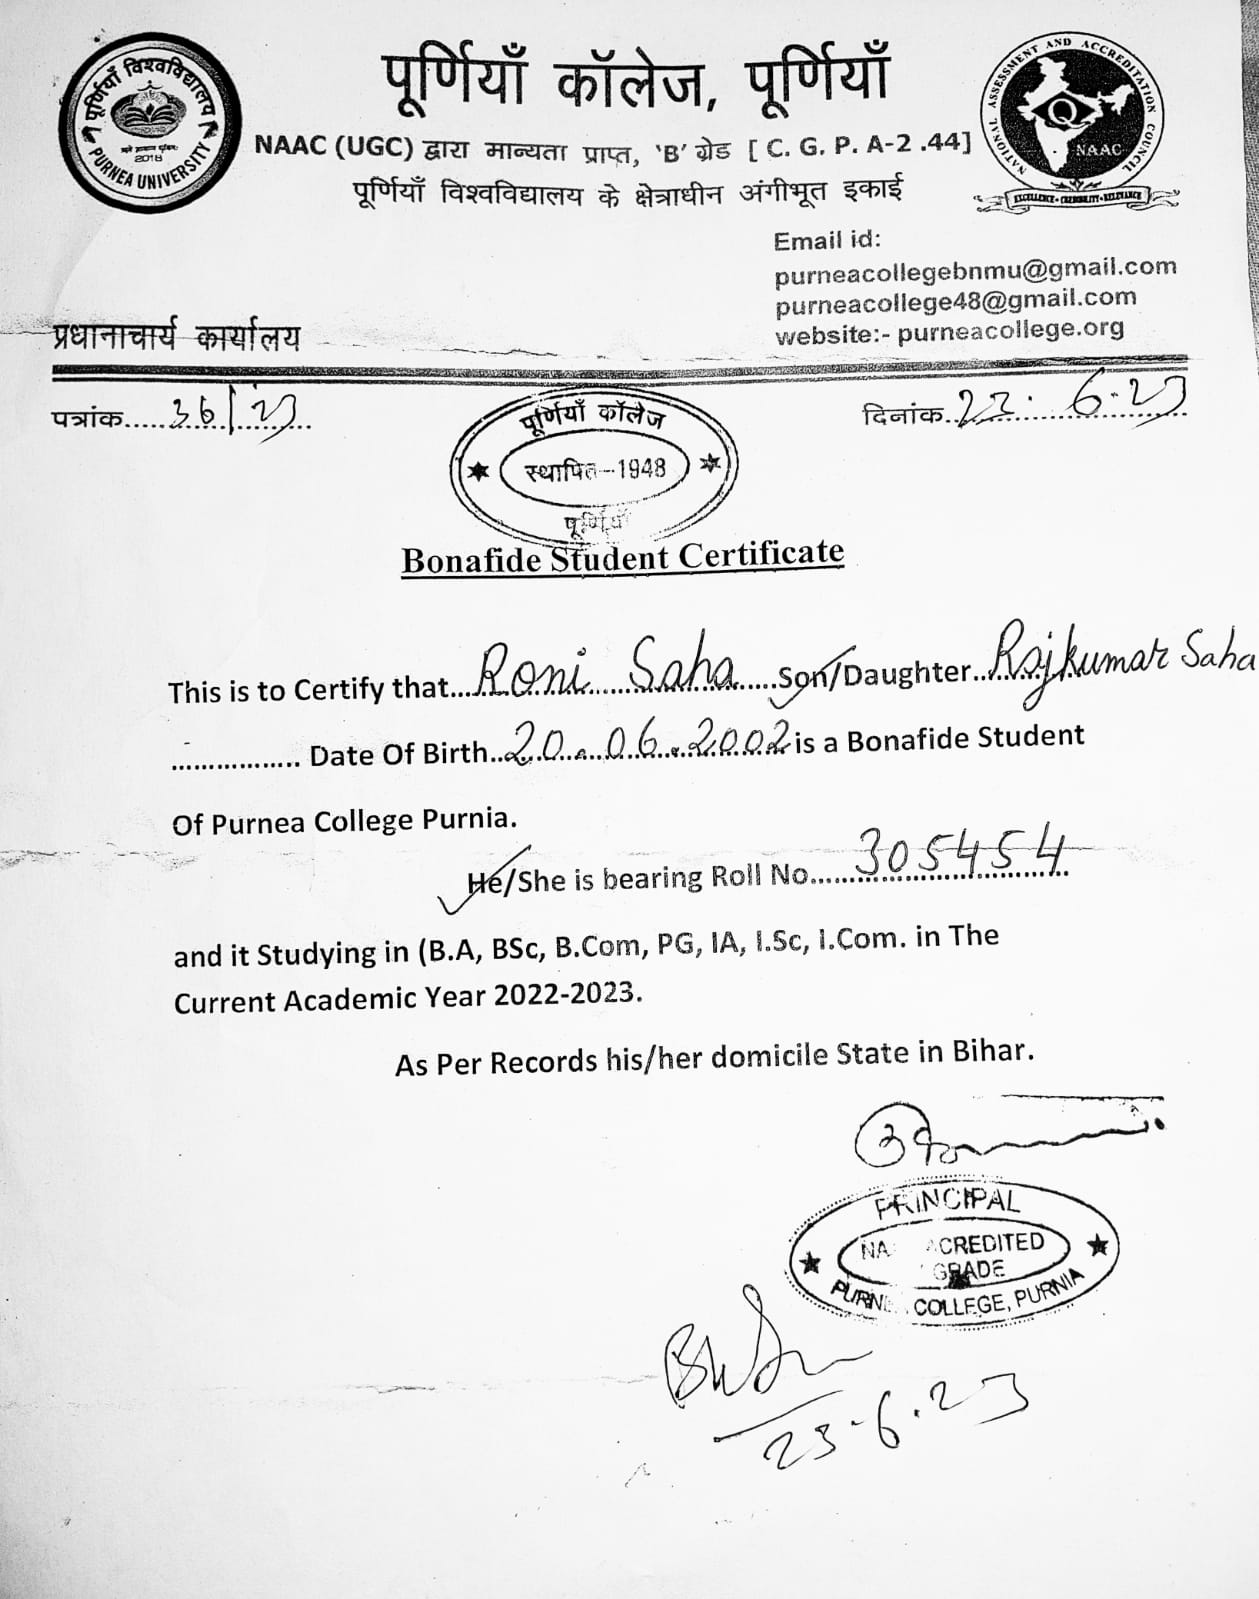 पूर्णियाँ विश्वविद्यालय
2018
PURNEA UNIVERSITY
पूर्णियाँ कॉलेज, पूर्णियाँ
NAAC (UGC) द्वारा मान्यता प्राप्त, 'B' ग्रेड [ C. G. P. A-2 .44]
पूर्णियाँ विश्वविद्यालय के क्षेत्राधीन अंगीभूत इकाई
NATIONAL ASSESSMENT AND ACCREDITATION COUNCIL
NAAC
EXCELLENCE • CREDIBILITY • RELEVANCE
Email id:
purneacollegebnmu@gmail.com
purneacollege48@gmail.com
website:- purneacollege.org
प्रधानाचार्य कार्यालय
पत्रांक.....36/23
दिनांक..23.6.23
पूर्णियाँ कॉलेज
स्थापित--1948
पूर्णियाँ
Bonafide Student Certificate
This is to Certify that...Roni Saha.....Son/Daughter..Rajkumar Saha
................ Date Of Birth..20.06.2002 is a Bonafide Student
Of Purnea College Purnia.
He/She is bearing Roll No.....305454
and it Studying in (B.A, BSc, B.Com, PG, IA, I.Sc, I.Com. in The
Current Academic Year 2022-2023.
As Per Records his/her domicile State in Bihar.
PRINCIPAL
ACREDITED
GRADE
COLLEGE, PURNIA
23-6.23